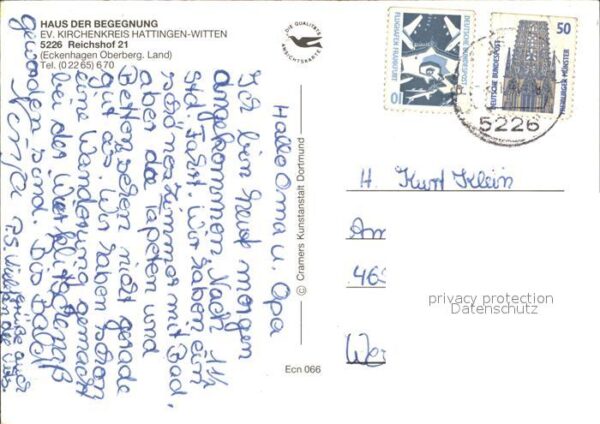 HAUS DER BEGEGNUNG
EV. KIRCHENKREIS HATTINGEN-WITTEN
5226 Reichshof 21
(Eckenhagen Oberberg. Land)
Tel. (0 22 65) 670
DIE QUALITÄTS
ANSICHTSKARTE
Hallo Oma u. Opa
Ich bin heut morgen
angekommen Nach 1 1/2
Std. Fahrt. Wir haben ein
schönes Zimmer mit Bad.
aber die Tapeten und
Betten sehen nicht gerade
gut aus. Wir haben schon
eine Wanderung gemacht
bei der wir klitschenaß
geworden sind. Bis Bald
P.S. Grüße auch
© Cramers Kunstanstalt Dortmund
Ecn 066
FLUGHAFEN FRANKFURT
DEUTSCHE BUNDESPOST
10
50
DEUTSCHE BUNDESPOST
FREIBURGER MÜNSTER
5226
H. Kurt Klein
Am
465
We
privacy protection
Datenschutz